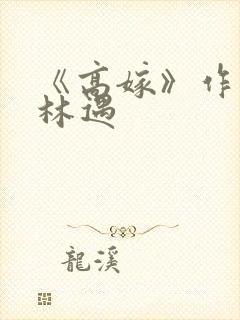 《高嫁》作
林遇
龍溪